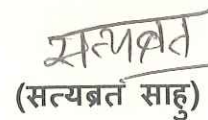 सत्यब्रत
(सत्यब्रत साहु)